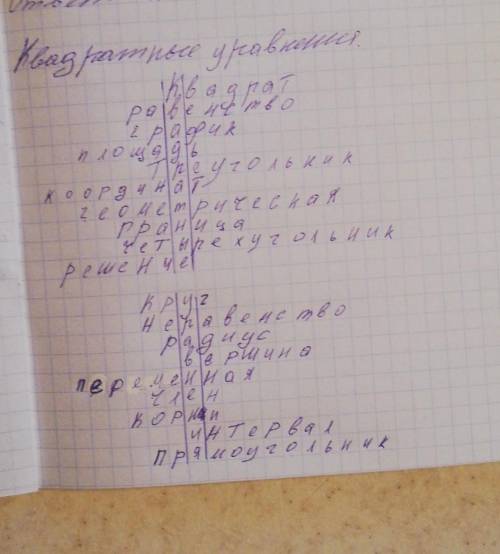 Квадратные уравнения.
Квадрат
равенство
график
площадь
треугольник
координат
геометрическая
граница
четырехугольник
решение
круг
неравенство
радиус
вершина
переменная
член
корни
интервал
прямоугольник